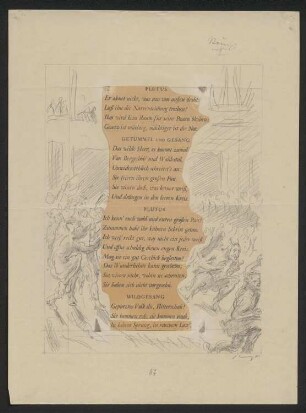 PLUTUS
Er ahnet nicht, was uns von außen droht;
Laß ihn die Narrenteidung treiben!
Ihm wird kein Raum für seine Possen bleiben;
Gesetz ist mächtig, mächtiger ist die Not.
GETÜMMEL UND GESANG
Das wilde Heer, es kommt zumal
Von Bergeshöh' und Waldestal,
Unwiderstehlich schreitet's an:
Sie feiern ihren großen Pan.
Sie wissen doch, was keiner weiß,
Und drängen in den leeren Kreis.
PLUTUS
Ich kenn' euch wohl und euren großen Pan!
Zusammen habt ihr kühnen Schritt getan.
Ich weiß recht gut, was nicht ein jeder weiß,
Und öffne schuldig diesen engen Kreis.
Mag sie ein gut Geschick begleiten!
Das Wunderlichste kann geschehn;
Sie wissen nicht, wohin sie schreiten,
Sie haben sich nicht vorgesehn.
WILDGESANG
Geputztes Volk du, Flitterschau!
Sie kommen roh, sie kommen rauh,
In hohem Sprung, in raschem Lauf